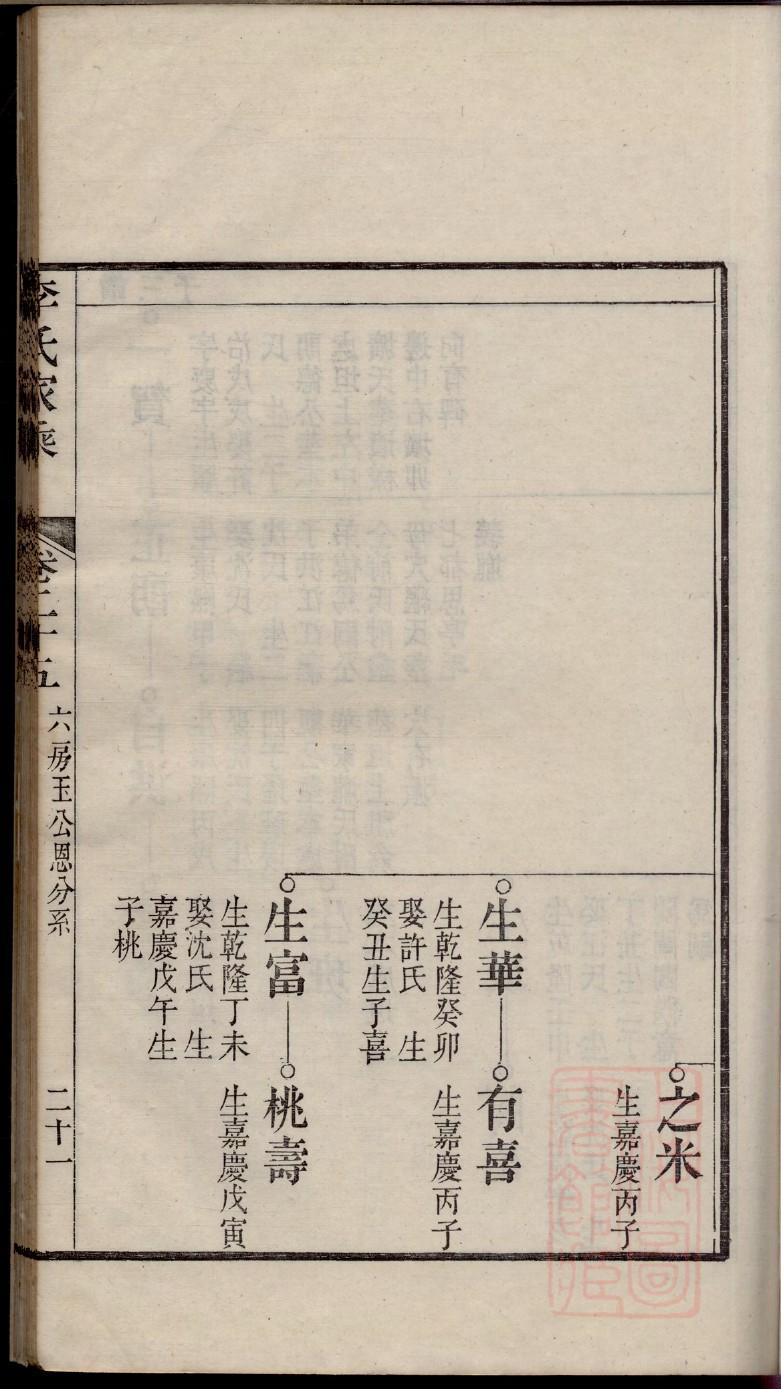 之米
生嘉慶丙子
生華
生乾隆癸卯
娶許氏　生
癸丑生子喜
有喜
生嘉慶丙子
生富
生乾隆丁未
娶沈氏　生
嘉慶戊午生
子桃
桃壽
生嘉慶戊寅
李氏家乘
卷二十五
六房玉公恩分系
二十一